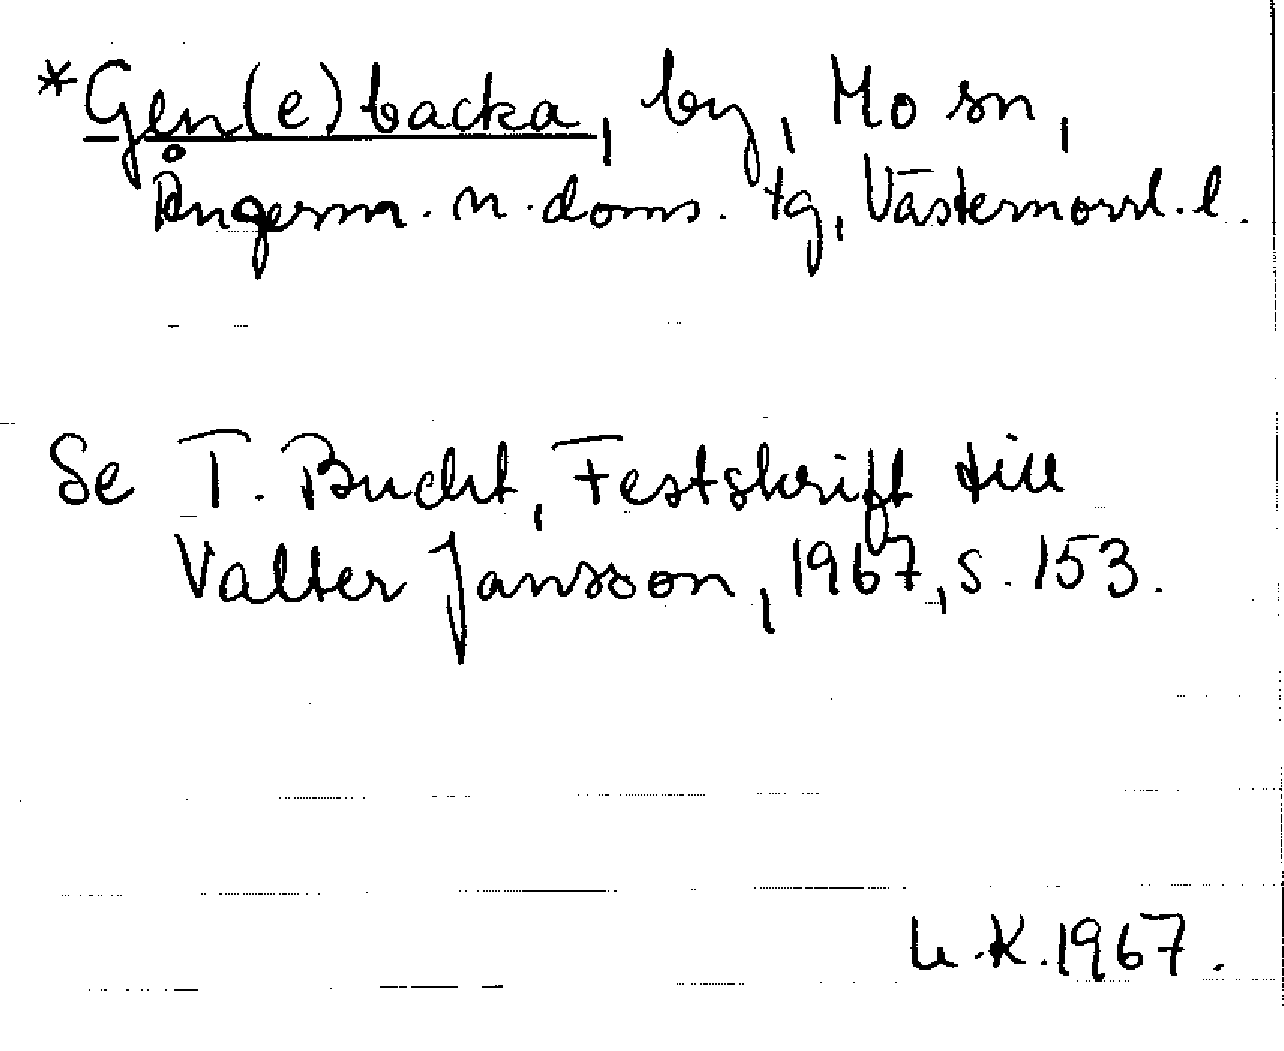 *Gen(e)backa, by, Mo sn,
Ångerm. n. doms. tg, Västernorrl. l.
Se T. Bucht, Festskrift till
Valter Jansson, 1967, s. 153.
K. 1967.